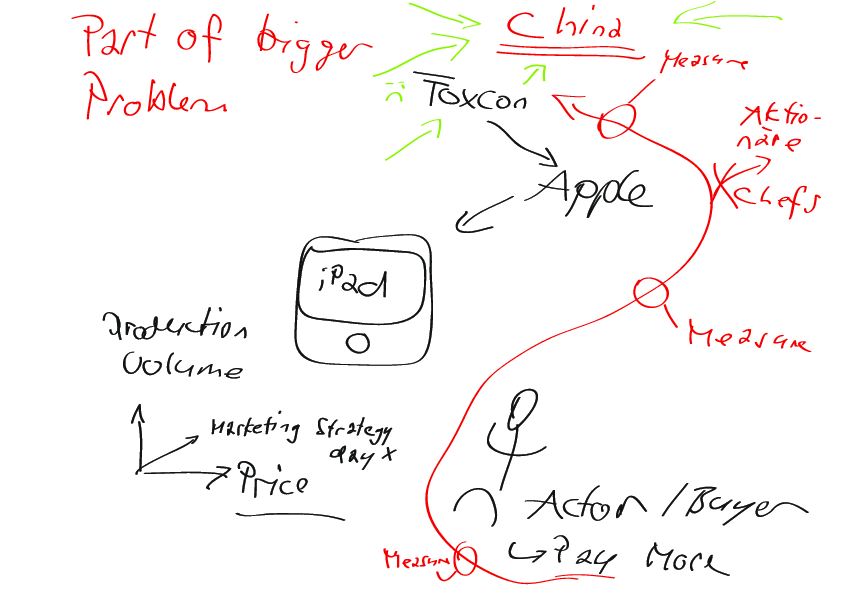 Part of bigger
Problem
China
Measure
Foxcon
Aktio-
näre
Chefs
Apple
iPad
Measure
Production
Volume
Marketing Strategy
day x
Price
Actor / Buyer
Pay More
Measure